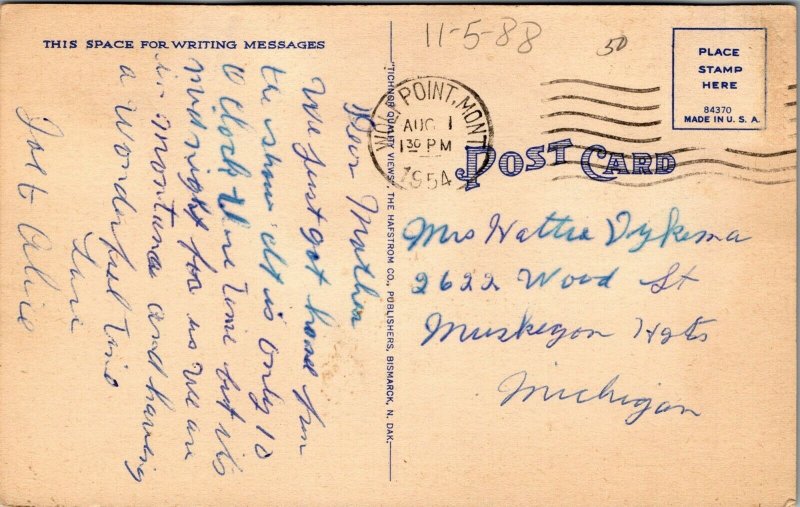 THIS SPACE FOR WRITING MESSAGES
Dear Mother
We just got home from
the show it is only 10
O clock here time but its
midnight for us we are
in Montana and having
a wonderful time
Love
Joe & Alice
"TICHNOR QUALITY VIEWS," THE HAFSTROM CO., PUBLISHERS, BISMARCK, N. DAK.
11-5-88
50
POINT, MONT
AUG 1
1 30 PM
1954
PLACE
STAMP
HERE
84370
MADE IN U. S. A.
POST CARD
Mrs Hattie Dykema
2622 Wood St
Muskegon Hgts
Michigan